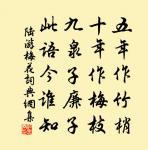 五年作竹梢
十年作梅枝
九泉子廉子
此語今誰知
陸游梅花詞典網集